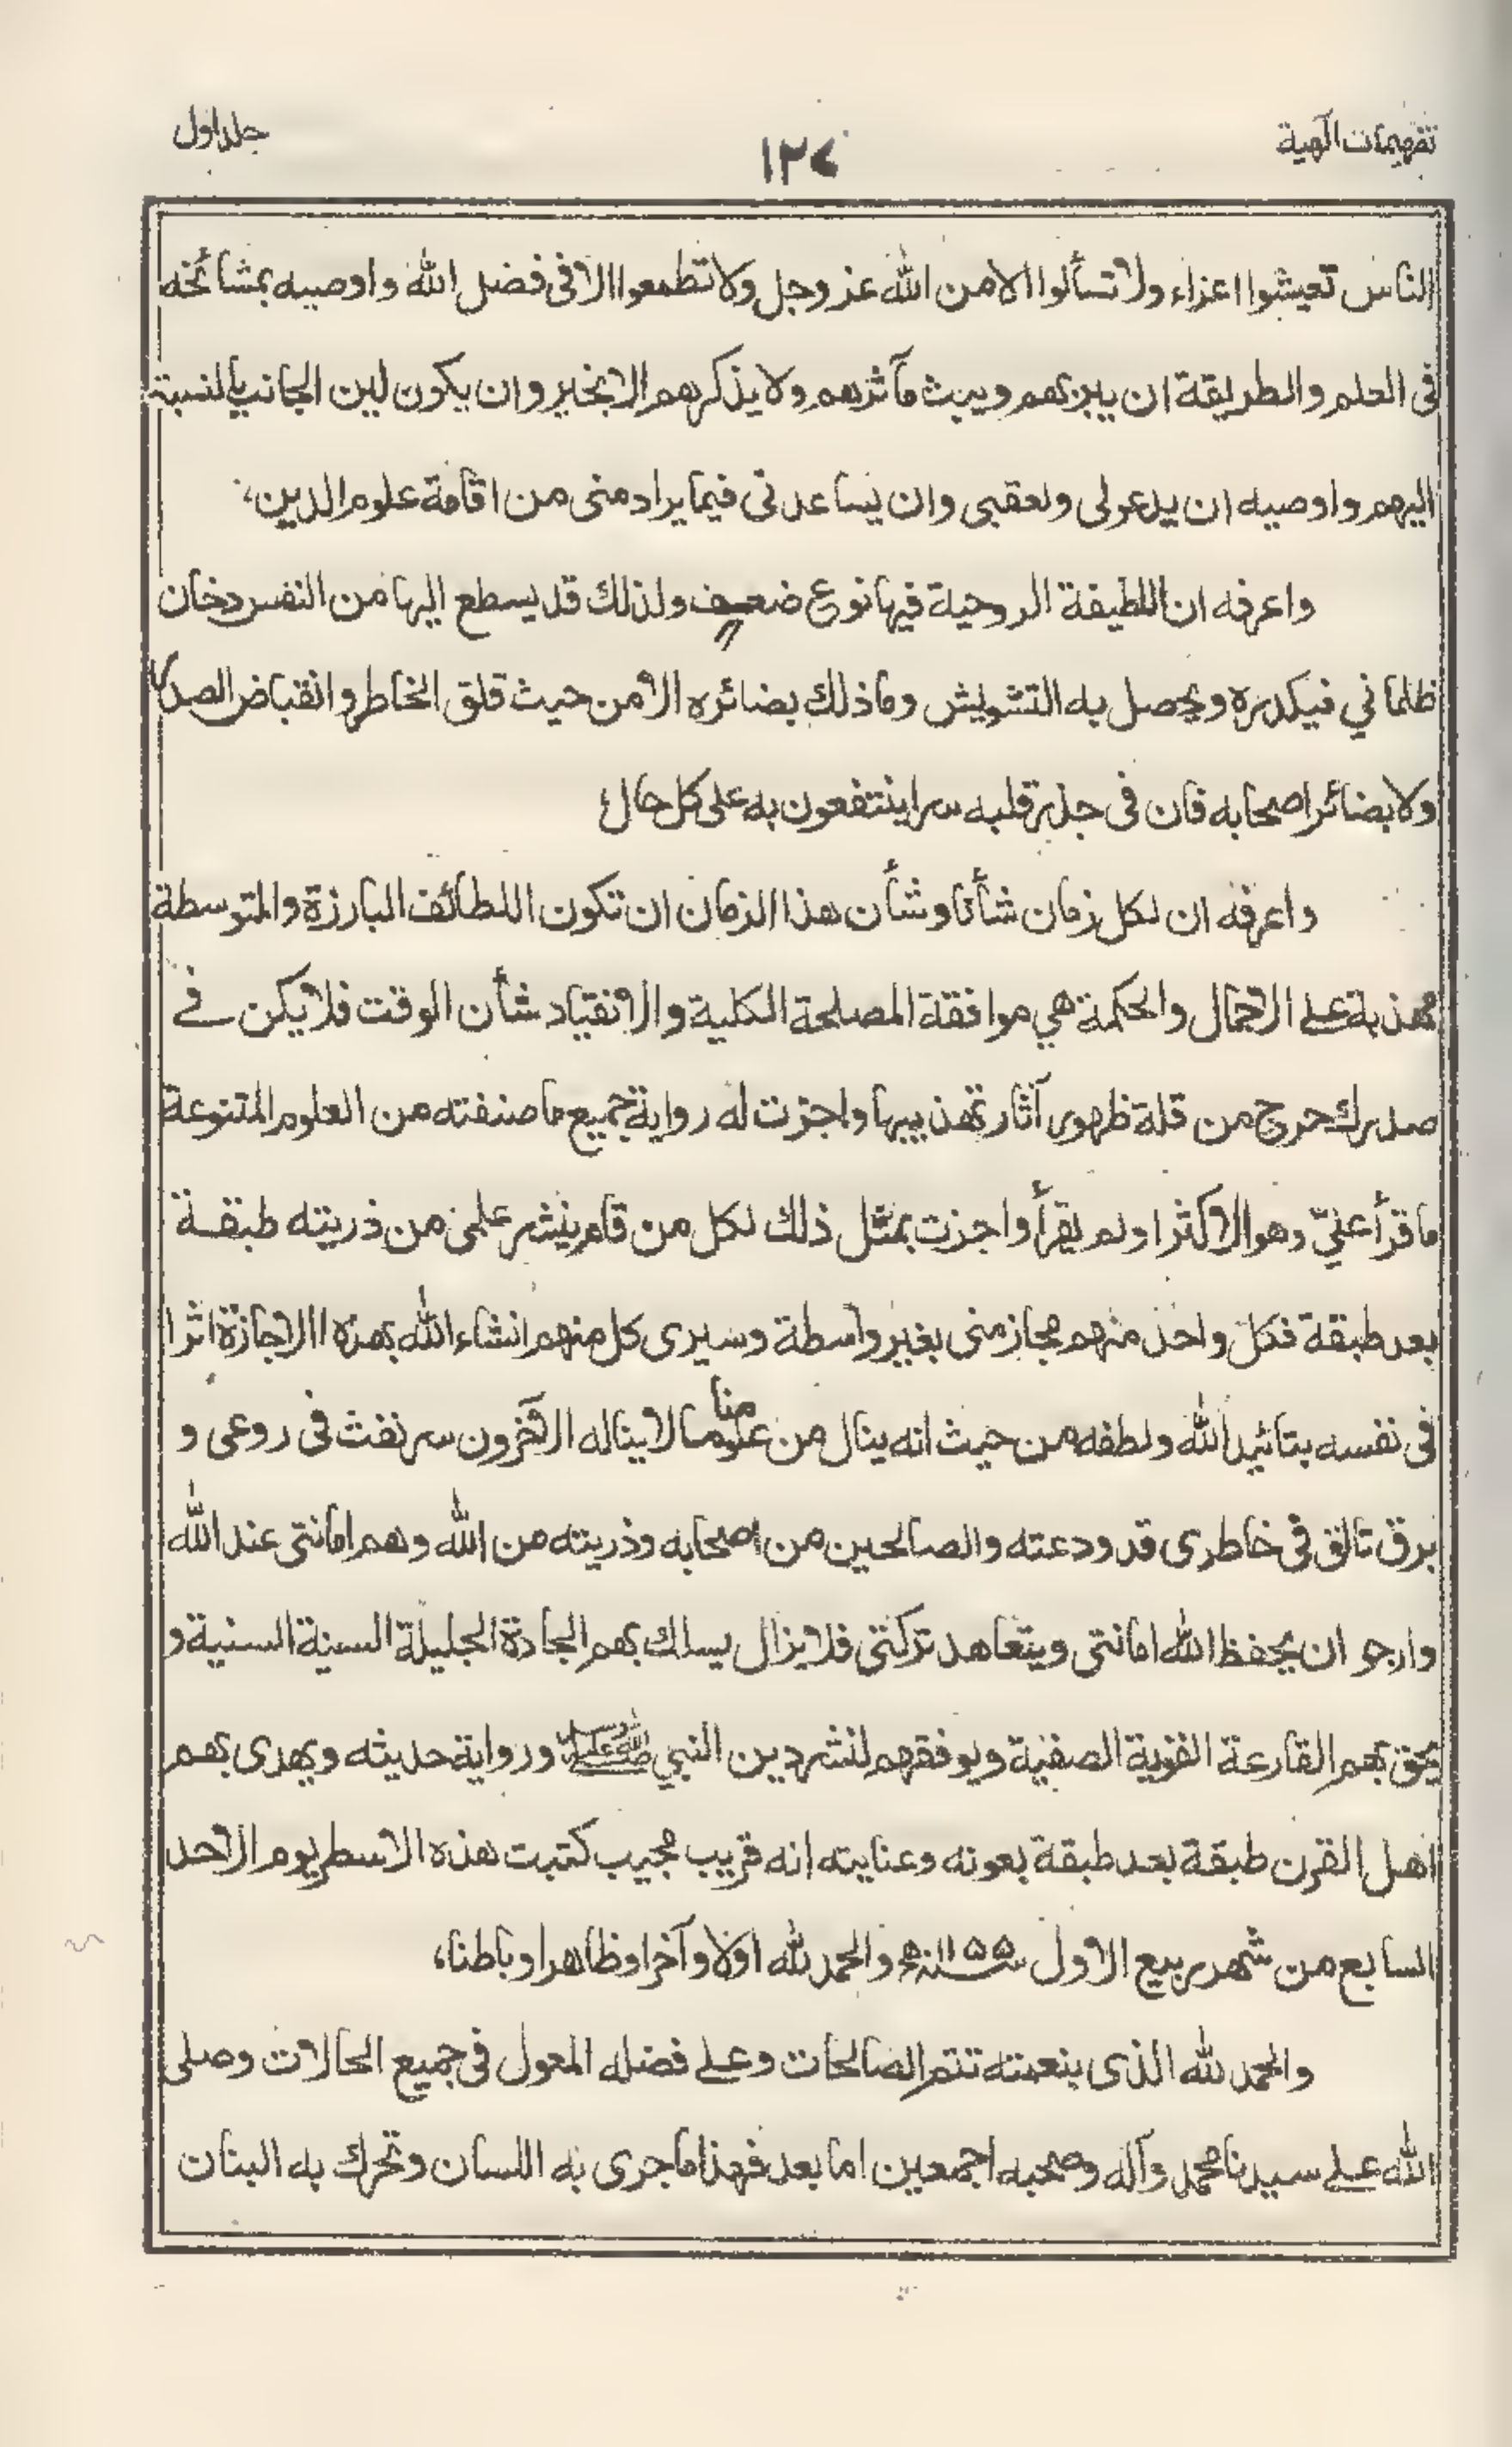 تفهيمات الٓهية
١٢٧
جلد اول
الناس تعيشوا اعزاء ولا تسألوا الا من الله عز وجل ولا تطمعوا الا فى فضل الله واوصيه بمشائخه
فى العلم والطريقة ان يبرّهم ويبث مآثرهم ولا يذكرهم الا بخير وان يكون لين الجانب بالنسبة
اليهم واوصيه ان يدعو لى ولعقبى وان يساعدنى فيما يراد منى من اقامة علوم الدين،
واعرفه ان اللطيفة الروحية فيها نوع ضعف ولذلك قد يسطع اليها من النفس دخان
ظلمانى فيكدره ويحصل به التشويش وما ذلك بضائره الا من حيث قلق الخاطر وانقباض الصدر
ولا بضائر اصحابه فان فى جذر قلبه سرا ينتفعون به على كل حال
واعرفه ان لكل زمان شأنا وشأن هذا الزمان ان تكون اللطائف البارزة والمتوسطة
مهذبة على الاجمال والحكمة هي موافقة المصلحة الكلية والانقياد شأن الوقت فلا يكن فے
صدرك حرج من قلة ظهور آثار تهذيبها واجزت له رواية جميع ما صنفته من العلوم المتنوعة
ما قرأ عليّ وهو الاكثر او لم يقرأ واجزت بمثل ذلك لكل من قام ينشر علمى من ذريته طبقة
بعد طبقة فكل واحد منهم مجاز منى بغير واسطة وسيرى كل منهم انشاء الله بهذه الاجازة اثرا
فى نفسه بتائيد الله ولطفه من حيث انه ينال من علومنا ما لا يناله الآخرون سر نفث فى روعى و
برق تالق فى خاطرى قد ودعته والصالحين من اصحابه وذريته من الله وهم امانتى عند الله
وارجو ان يحفظ الله امانتى ويتعاهد تركتى فلا يزال يسلك بهم الجادة الجليلة السنية السنية و
يحق بهم القارعة القوية الصفية ويوفقهم لنشر دين النبي صلى الله عليه وسلم ورواية حديثه ويهدى بهم
اهل القرن طبقة بعد طبقة بعونه وعنايته انه قريب مجيب كتبت هذه الاسطر يوم الاحد
السابع من شهر ربيع الاول سنة ١١٥٥ھ والحمد لله اولا وآخرا وظاهرا وباطنا،
والحمد لله الذى بنعمته تتم الصالحات وعلے فضله المعول فى جميع الحالات وصلى
الله علے سيدنا محمد وآله وصحبه اجمعين اما بعد فهذا ما جرى به اللسان وتحرك به البنان